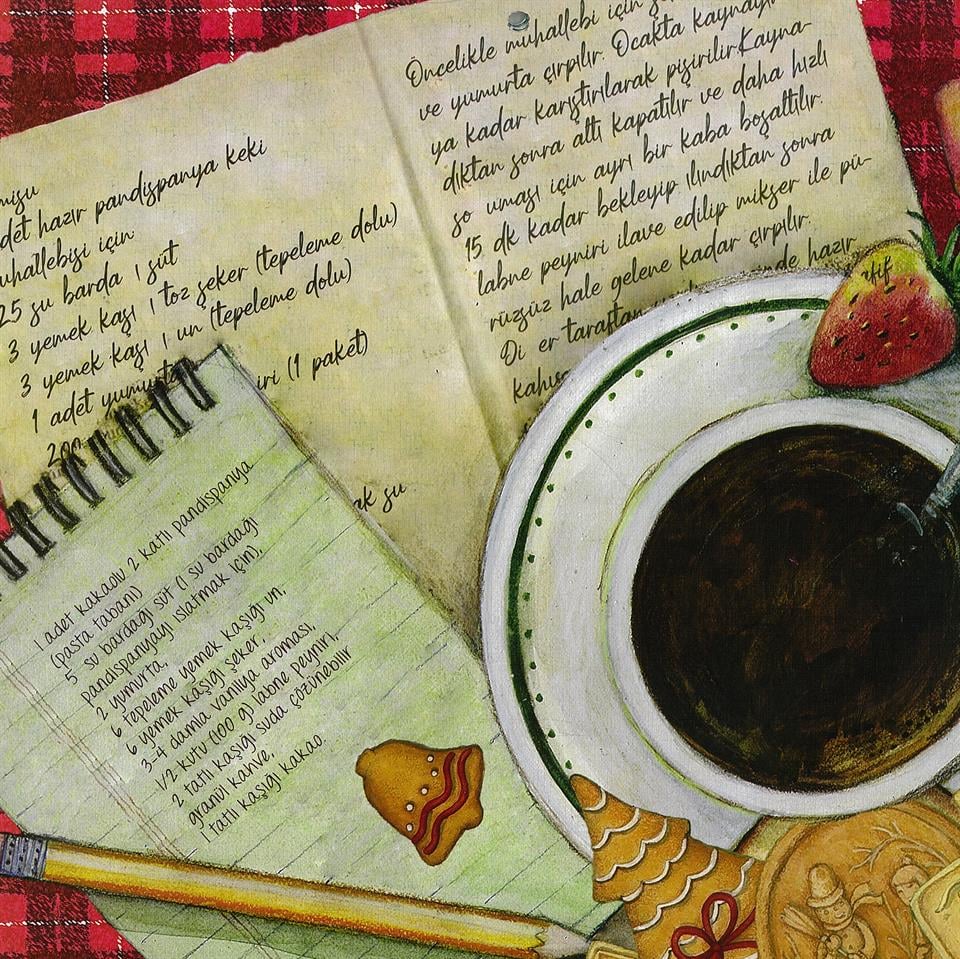 misu
det hazır pandispanya keki
uhallebisi için
25 su barda ı süt
3 yemek kaşı ı toz şeker (tepeleme dolu)
3 yemek kaşı ı un (tepeleme dolu)
1 adet yumurta
200 iri (1 paket)
ak su
Öncelikle muhallebi için
ve yumurta çırpılır. Ocakta kaynayı
ya kadar karıştırılarak pişirilir.Kayna-
dıktan sonra altı kapatılır ve daha hızlı
so uması için ayrı bir kaba boşaltılır.
15 dk kadar bekleyip ılındıktan sonra
labne peyniri ilave edilip mikser ile pü-
rüzsüz hale gelene kadar çırpılır.
Di er taraftan nde hazır
kahve afif
1 adet kakaolu 2 katlı pandispanya
(pasta tabanı)
5 su bardağı süt (1 su bardağı
pandispanyayı ıslatmak için),
2 yumurta,
6 tepeleme yemek kaşığı un,
6 yemek kaşığı şeker,
3-4 damla vanilya aroması,
1/2 kutu (100 g) labne peyniri,
2 tatlı kaşığı suda çözünebilir
granül kahve,
1 tatlı kaşığı kakao.